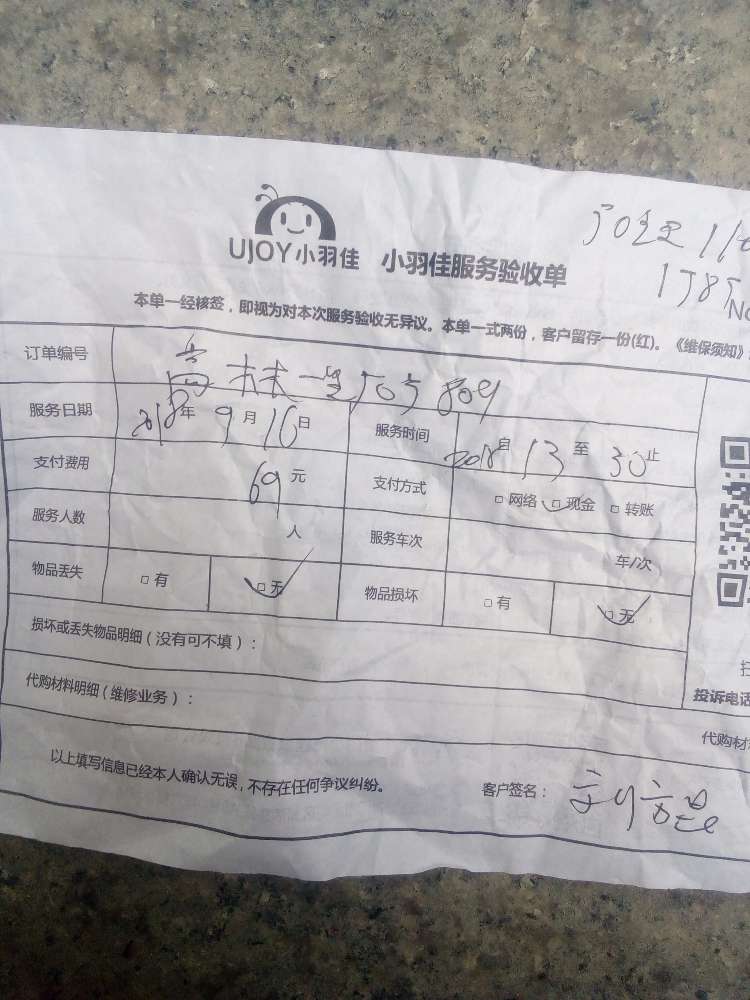 UJOY小羽佳 小羽佳服务验收单
本单一经核签，即视为对本次服务验收无异议。本单一式两份，客户留存一份(红)。《维保须知》
订单编号
服务日期 2018年 9月 16日 服务时间 2018自 13 至 30止
支付费用 69元 支付方式 □网络 □现金 □转账
服务人数 人 服务车次 车/次
物品丢失 □有 □无 物品损坏 □有 □无
损坏或丢失物品明细（没有可不填）：
投诉电话
代购材料明细（维修业务）：
代购材
以上填写信息已经本人确认无误，不存在任何争议纠纷。 客户签名：